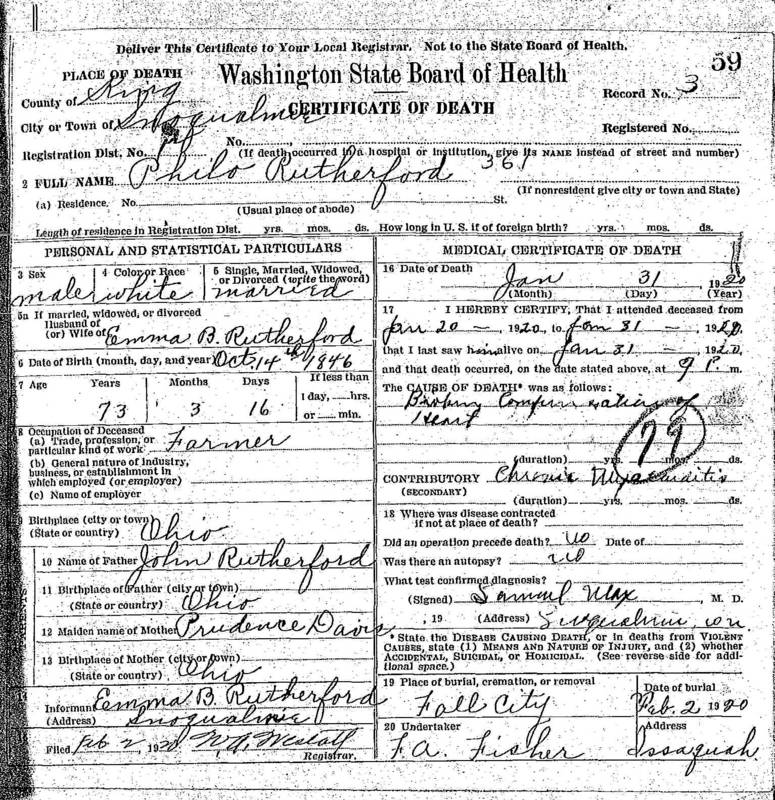 Deliver This Certificate to Your Local Registrar. Not to the State Board of Health.
59
PLACE OF DEATH
Washington State Board of Health
County of King
Record No. 3
CERTIFICATE OF DEATH
City or Town of Snoqualmie
Registered No.
Registration Dist. No. No.
(If death occurred in a hospital or institution, give its NAME instead of street and number)
361
2 FULL NAME Philo Rutherford
(If nonresident give city or town and State)
(a) Residence. No. St.
(Usual place of abode)
Length of residence in Registration Dist. yrs. mos. ds. How long in U.S. if of foreign birth? yrs. mos. ds.
PERSONAL AND STATISTICAL PARTICULARS
3 Sex
male
4 Color or Race
white
5 Single, Married, Widowed,
or Divorced (write the word)
married
5a If married, widowed, or divorced
Husband of
(or) Wife of Emma B. Rutherford
6 Date of Birth (month, day, and year) Oct. 14th 1846
7 Age
Years
73
Months
3
Days
16
If less than
1 day, hrs.
or min.
8 Occupation of Deceased
(a) Trade, profession, or
particular kind of work Farmer
(b) General nature of industry,
business, or establishment in
which employed (or employer)
(c) Name of employer
9 Birthplace (city or town)
(State or country) Ohio
10 Name of Father John Rutherford
11 Birthplace of Father (city or town)
(State or country) Ohio
12 Maiden name of Mother Prudence Davis
13 Birthplace of Mother (city or town)
(State or country) Ohio
14
Informant Emma B. Rutherford
(Address) Snoqualmie
15
Filed Feb 2, 1920
Registrar.
MEDICAL CERTIFICATE OF DEATH
16 Date of Death
Jan 31 1920
(Month) (Day) (Year)
17 I HEREBY CERTIFY, That I attended deceased from
Jan 20 — 1920, to Jan 31 — 1920,
that I last saw him alive on Jan 31 — 1920,
and that death occurred, on the date stated above, at 9 P. m.
The CAUSE OF DEATH* was as follows:
Broken Compensation of
Heart
79
(duration) yrs. mos. ds.
CONTRIBUTORY Chronic Myocarditis
(SECONDARY)
(duration) yrs. mos. ds.
18 Where was disease contracted
if not at place of death?
Did an operation precede death? no Date of
Was there an autopsy? no
What test confirmed diagnosis?
(Signed) Samuel Max, M. D.
, 19 (Address)
* State the DISEASE CAUSING DEATH, or in deaths from VIOLENT
CAUSES, state (1) MEANS AND NATURE OF INJURY, and (2) whether
ACCIDENTAL, SUICIDAL, or HOMICIDAL. (See reverse side for addi-
tional space.)
19 Place of burial, cremation, or removal
Fall City
Date of burial
Feb. 2 1920
20 Undertaker
F.A. Fisher
Address
Issaquah